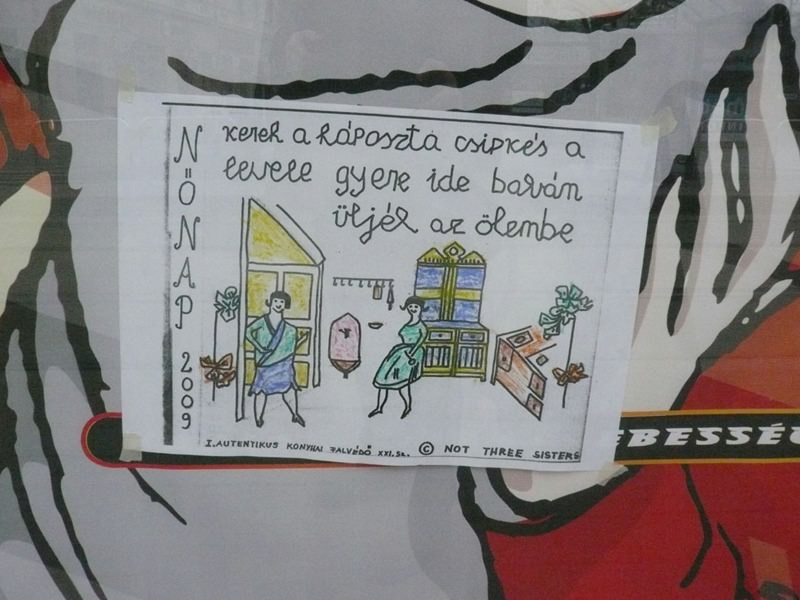 NŐNAP 2009
kerek a káposzta csipkés a
levele gyere ide babám
üljél az ölembe
I. AUTENTIKUS KONYHAI FALVÉDŐ XXI. SZ. © NOT THREE SISTERS
EBESSÉG